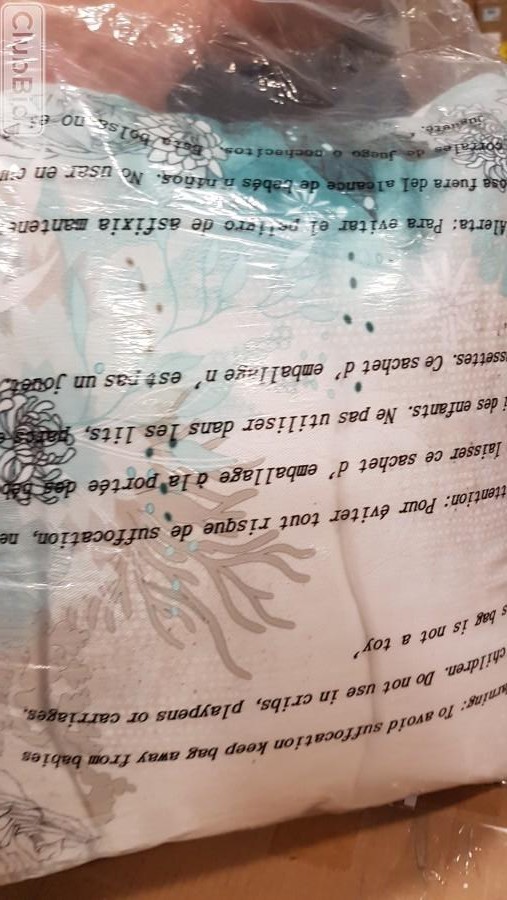 rning: To avoid suffocation keep bag away from babies
children. Do not use in cribs, playpens or carriages,
s bag is not a toy'
ttention: Pour éviter tout risque de suffocation, ne
laisser ce sachet d' emballage à la portée des béb
i des enfants. Ne pas utiliser dans les lits, parcs
ssettes. Ce sachet d' emballage n' est pas un jouet.
Alerta: Para evitar el peligro de asfixia mantene
osa fuera del alcance de bebés n niños. No usar en cu
cortales de juego o cochecitos Esta bolsa no es
juguete.
ClubBid